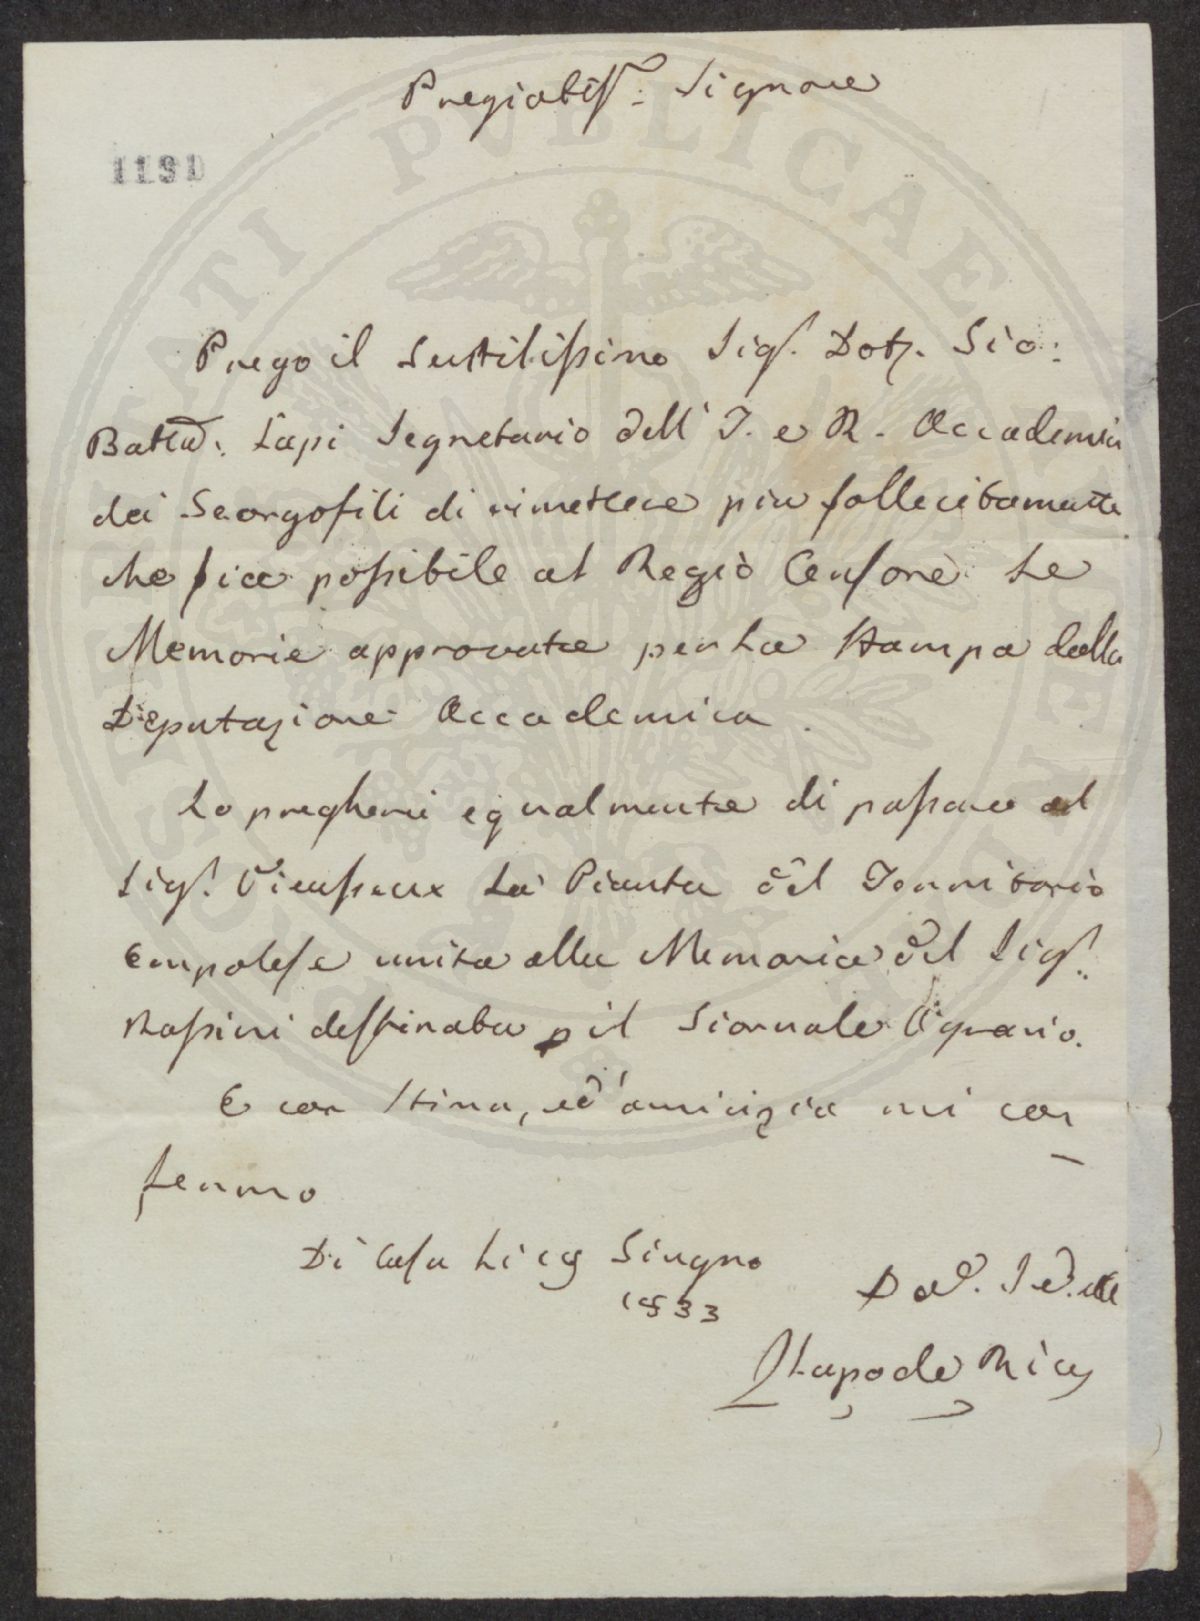 Pregiatiss.: Signore
1191
Prego il Gentilissimo Sig.r Dott. Gio:
Batta: Lapi Segretario dell' I. e R. Accademia
dei Georgofili di rimettere piu sollecitamente
che sia possibile al Regio Censore le
Memorie approvate per la stampa dalla
Deputazione Accademica.
Lo pregherei egualmente di passare al
Sig.r Vieusseux la Pianta del Territorio
Empolese unita alla Memoria del Sig.r
destinata p il Giornale Agrario.
E con stima, ed amicizia mi con
fermo
Di Casa li Giugno
1833
Lapo de Ricci
PUBLICAE